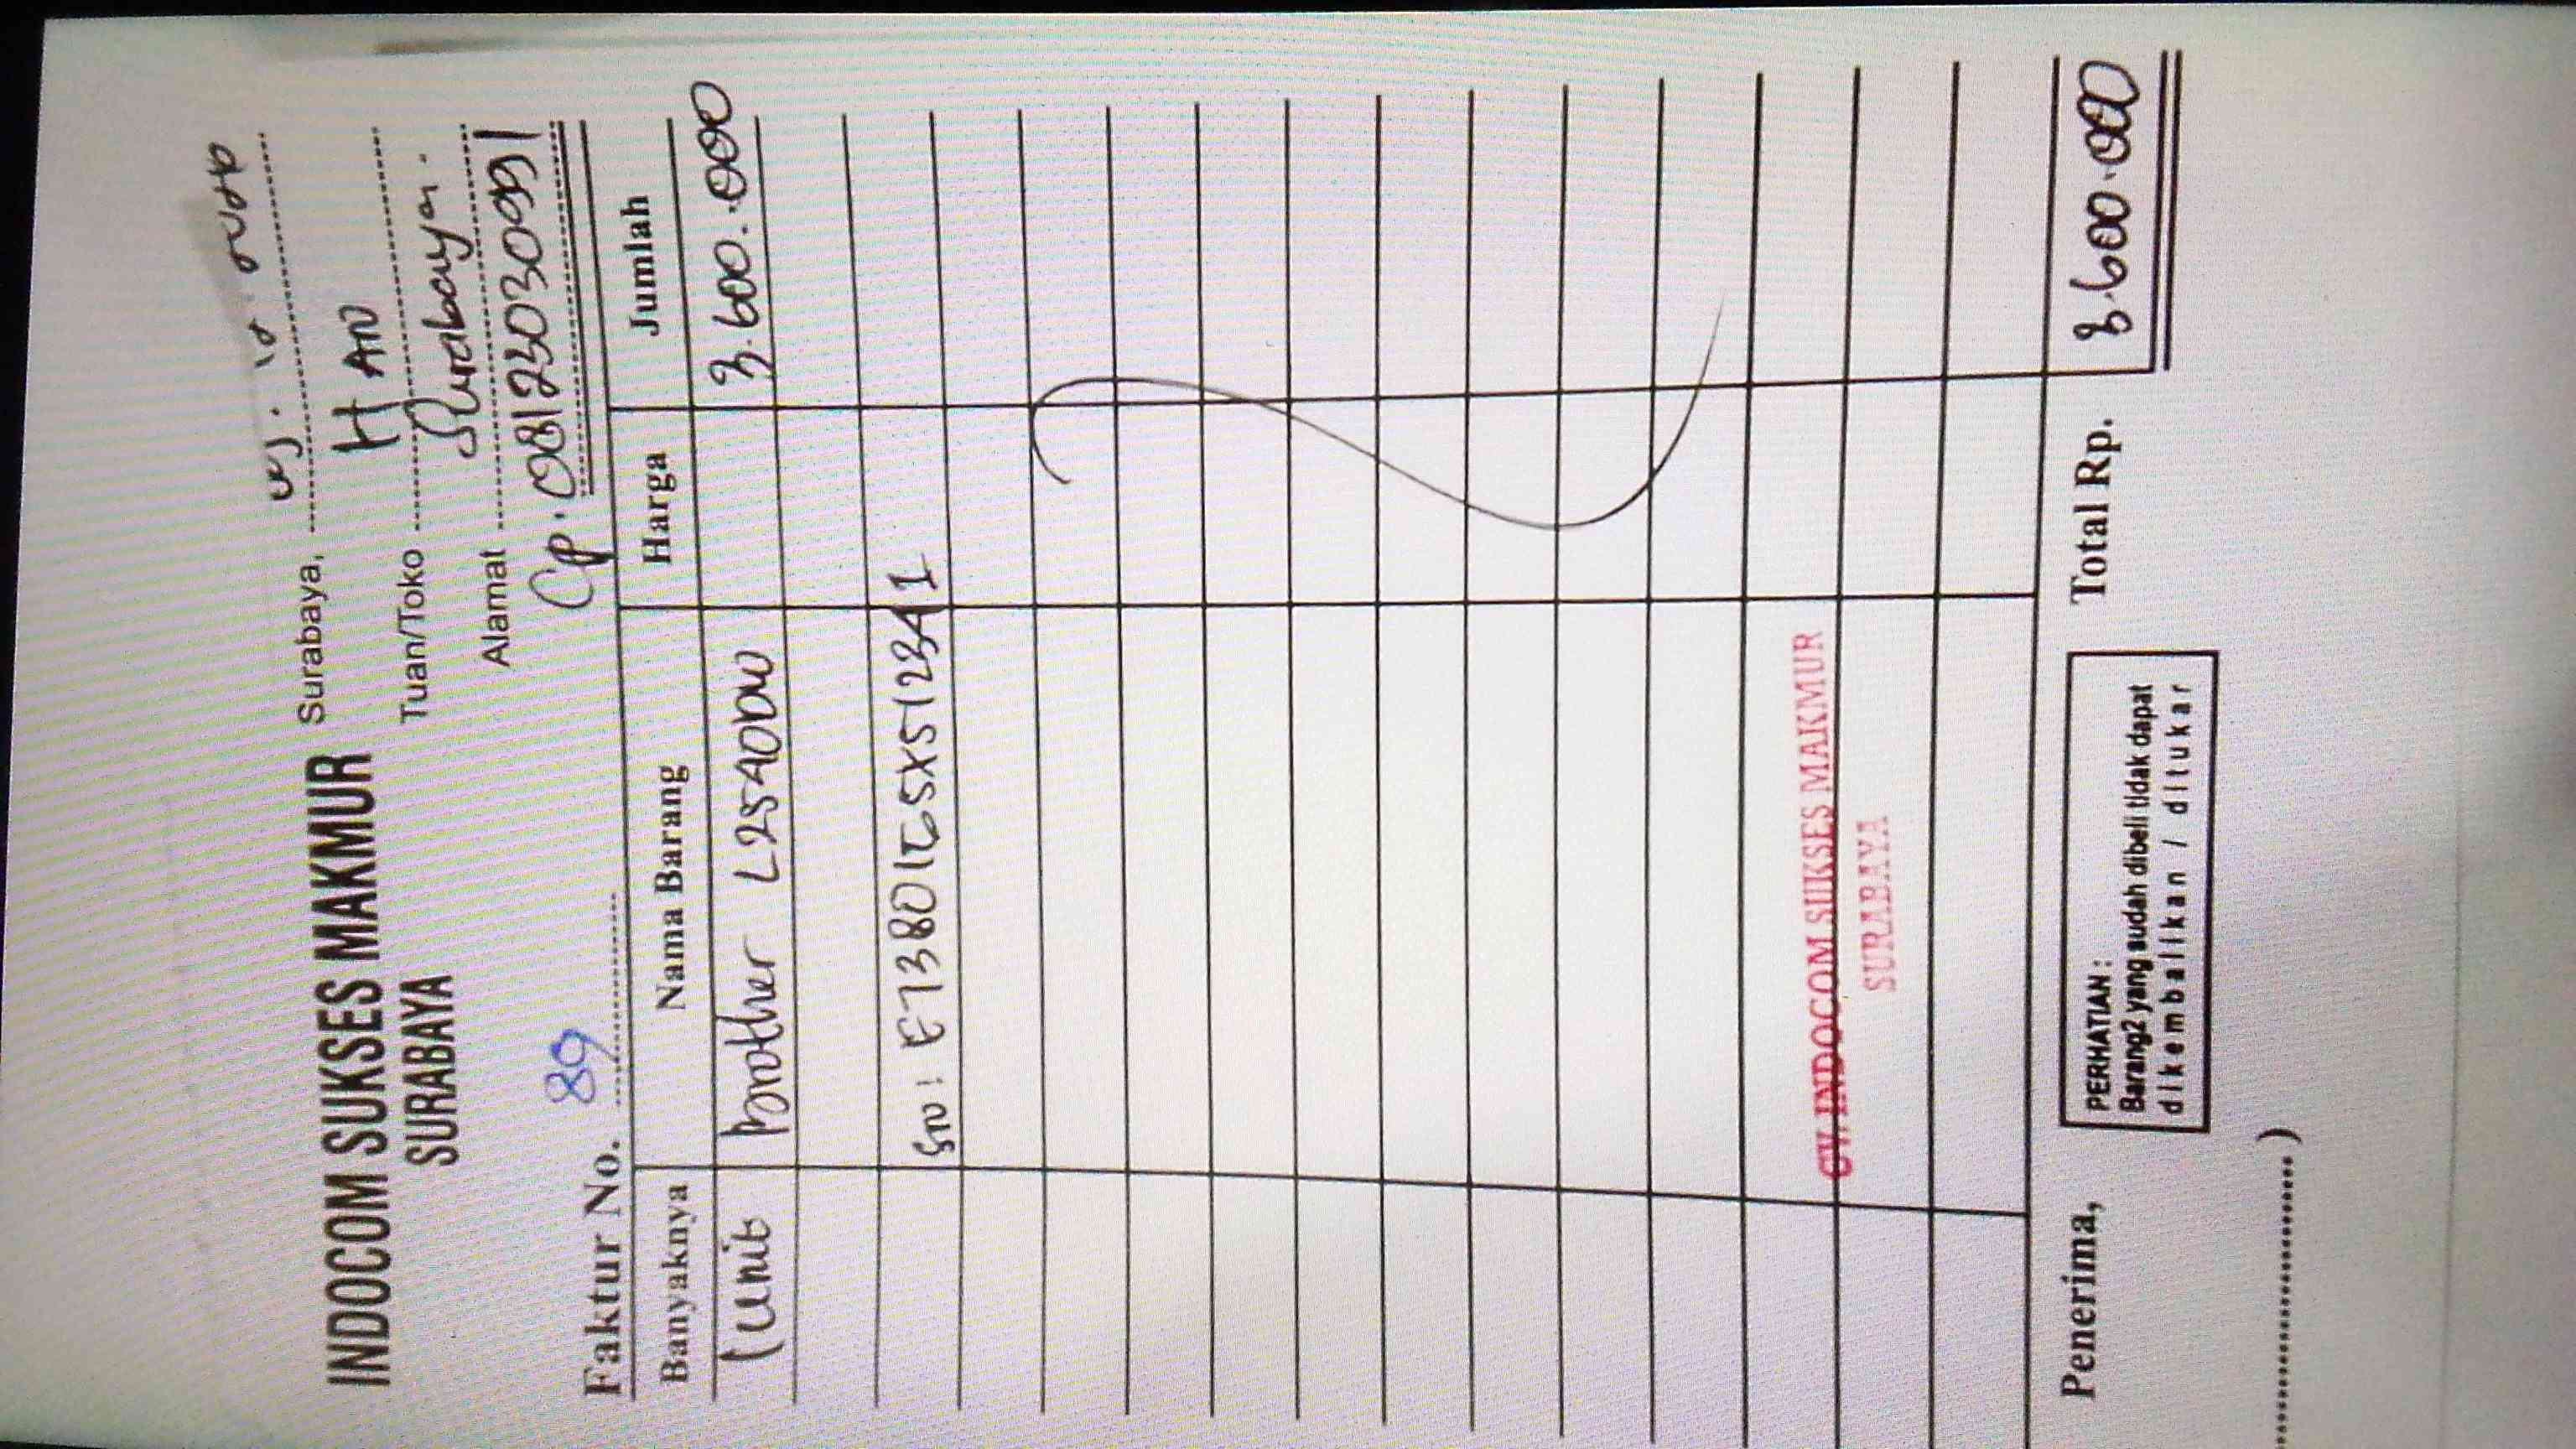 INDOCOM SUKSES MAKMUR
SURABAYA
Surabaya,
Tuan/Toko HAN
Alamat Surabaya.
Cp. 08123030991
Faktur No. 89
Banyaknya Nama Barang Harga Jumlah
1 unit brother L2540DW 3.600.000
SN:
CV. INDOCOM SUKSES MAKMUR
SURABAYA
Penerima,
PERHATIAN :
Barang2 yang sudah dibeli tidak dapat
dikembalikan / ditukar
Total Rp. 3.600.000